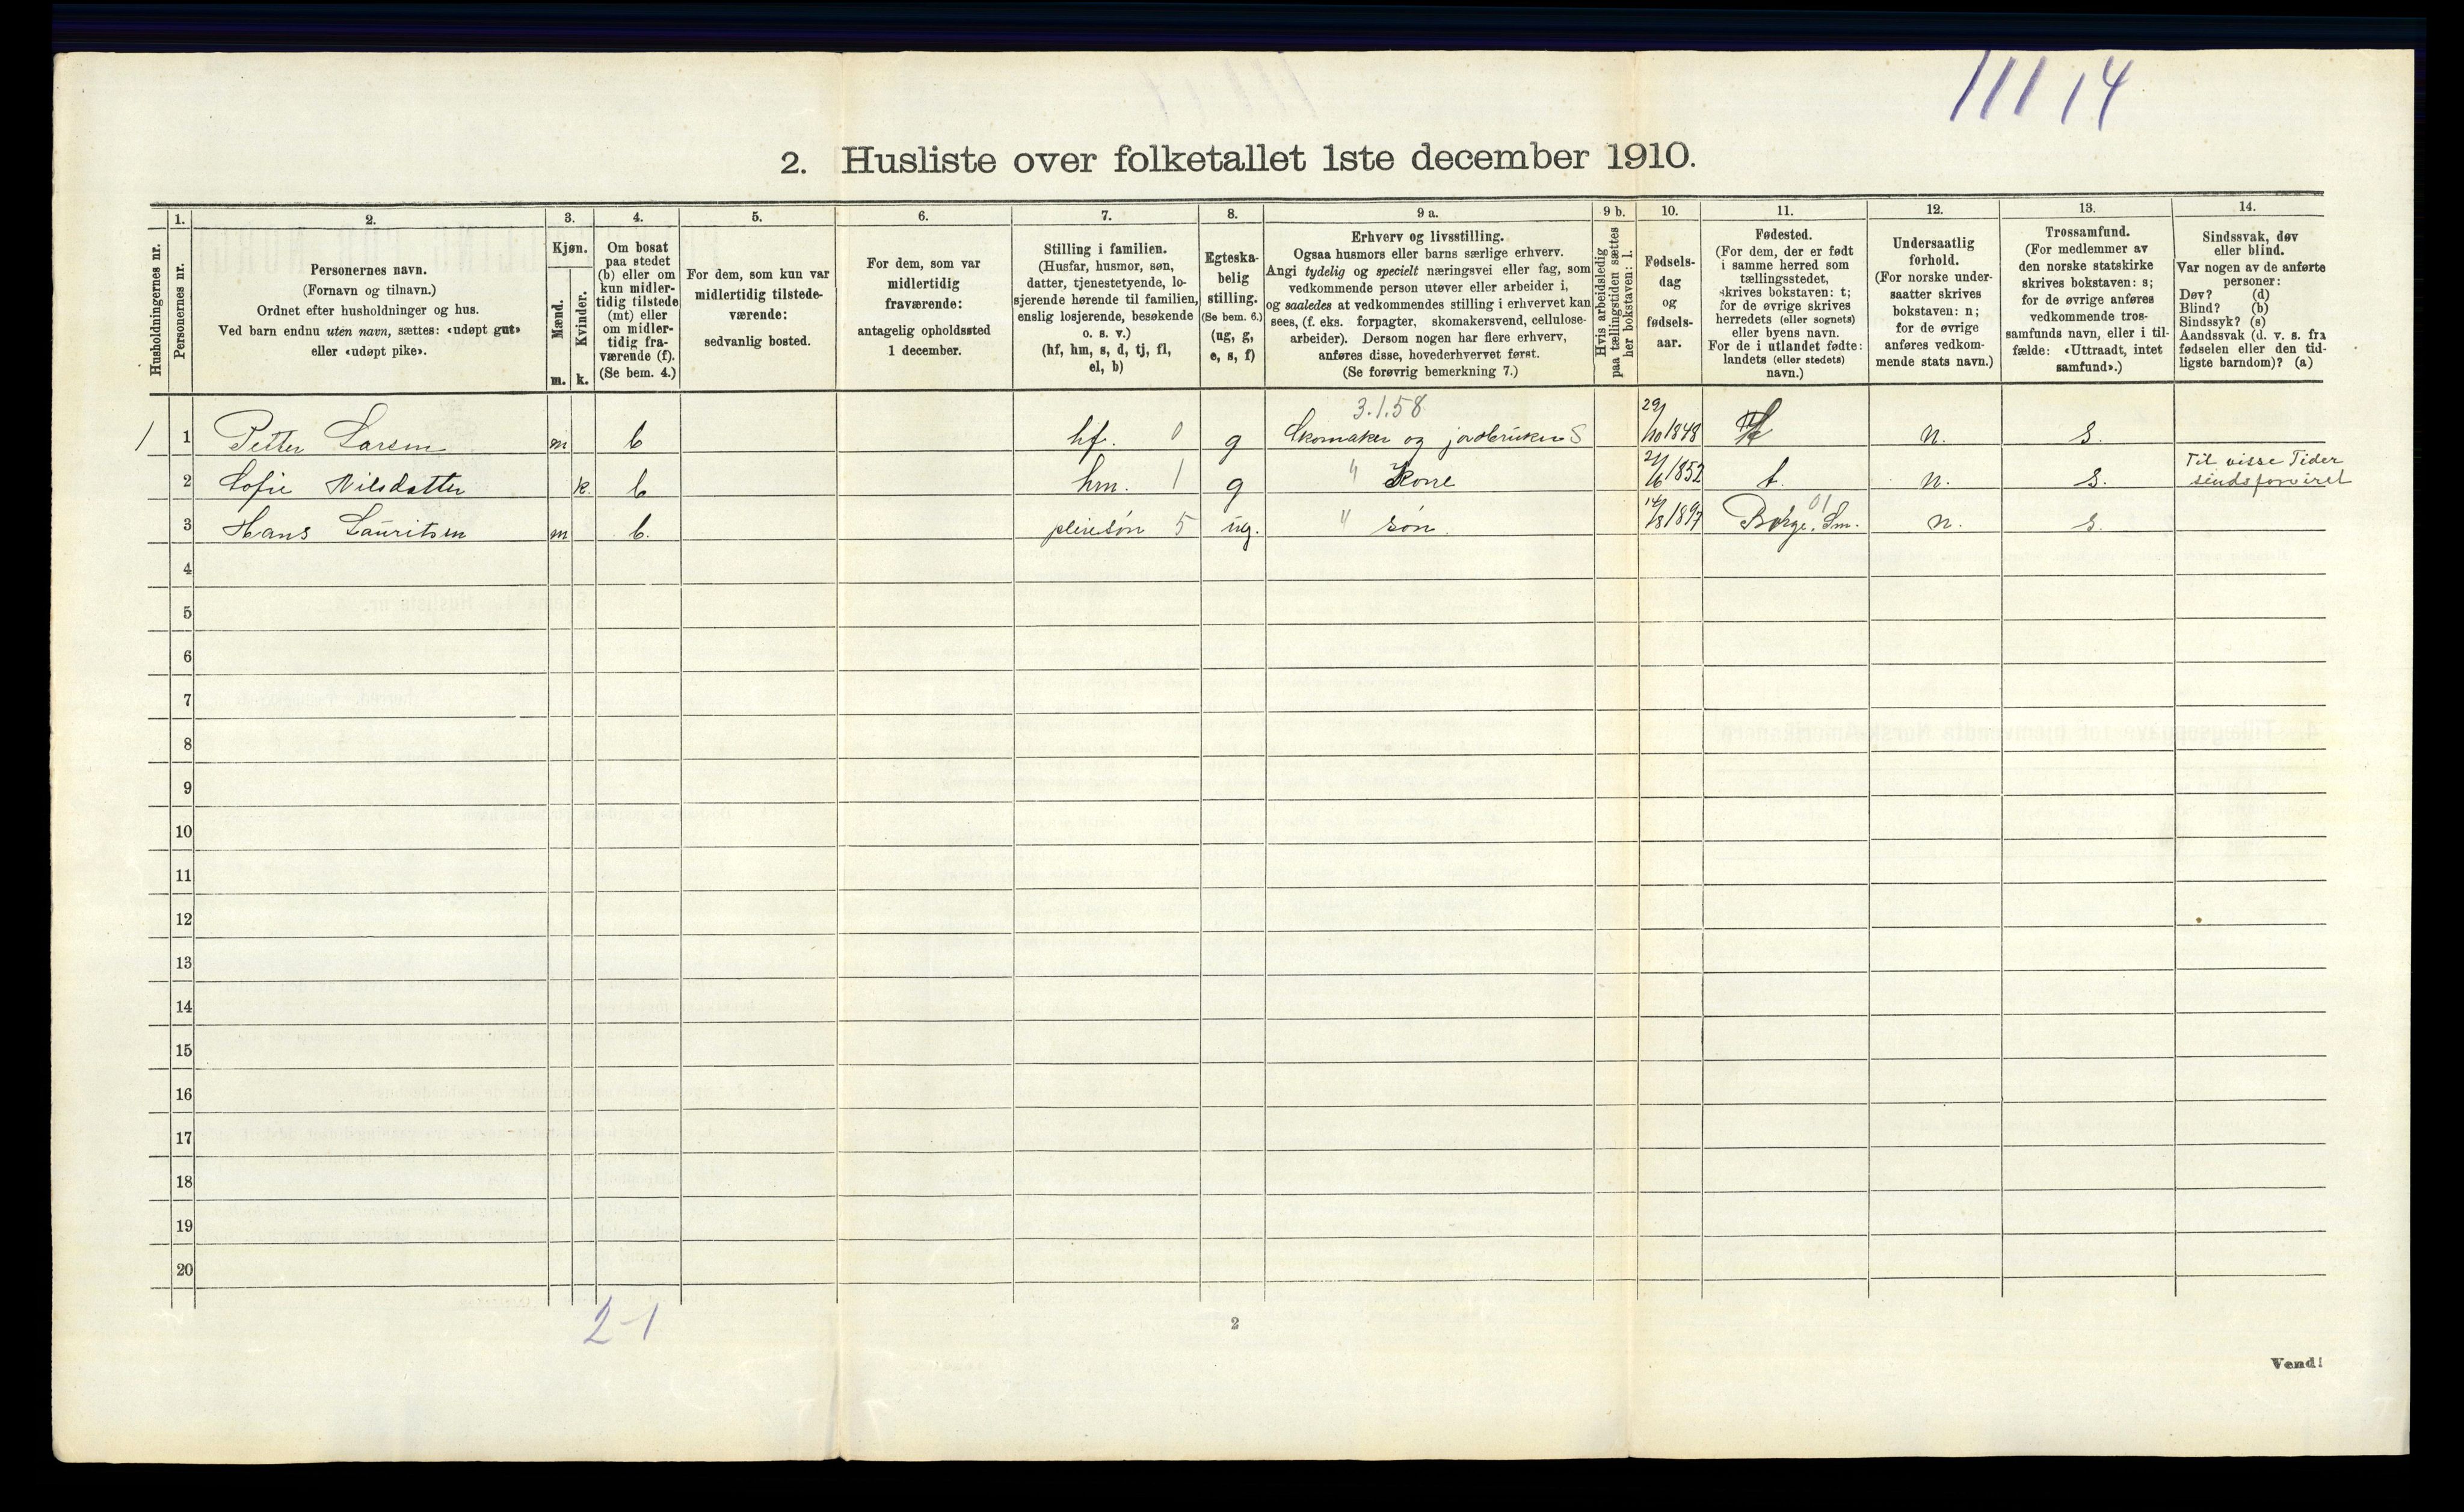 111 14
2. Husliste over folketallet 1ste december 1910.
Husholdningernes nr.
1.
Personernes nr.
2.
Personernes navn.
(Fornavn og tilnavn.)
Ordnet efter husholdninger og hus.
Ved barn endnu uten navn, sættes: «udøpt gut»
eller «udøpt pike».
3.
Kjøn.
Mænd.
m.
Kvinder.
k.
4.
Om bosat
paa stedet
(b) eller om
kun midler-
tidig tilstede
(mt) eller
om midler-
tidig fra-
værende (f).
(Se bem. 4.)
5.
For dem, som kun var
midlertidig tilstede-
værende:
sedvanlig bosted.
6.
For dem, som var
midlertidig
fraværende:
antagelig opholdssted
1 december.
7.
Stilling i familien.
(Husfar, husmor, søn,
datter, tjenestetyende, lo-
sjerende hørende til familien,
enslig losjerende, besøkende
o. s. v.)
(hf, hm, s, d, tj, fl,
el, b)
8.
Egteska-
belig
stilling.
(Se bem. 6.)
(ug, g,
e, s, f)
9 a.
Erhverv og livsstilling.
Ogsaa husmors eller barns særlige erhverv.
Angi tydelig og specielt næringsvei eller fag, som
vedkommende person utøver eller arbeider i,
og saaledes at vedkommendes stilling i erhvervet kan
sees, (f. eks. forpagter, skomakersvend, cellulose-
arbeider). Dersom nogen har flere erhverv,
anføres disse, hovederhvervet først.
(Se forøvrig bemerkning 7.)
9 b.
Hvis arbeidsledig
paa tællingstiden sættes
her bokstaven: l.
10.
Fødsels-
dag
og
fødsels-
aar.
11.
Fødested.
(For dem, der er født
i samme herred som
tællingsstedet,
skrives bokstaven: t;
for de øvrige skrives
herredets (eller sognets)
eller byens navn.
For de i utlandet fødte:
landets (eller stedets)
navn.)
12.
Undersaatlig
forhold.
(For norske under-
saatter skrives
bokstaven: n;
for de øvrige
anføres vedkom-
mende stats navn.)
13.
Trossamfund.
(For medlemmer av
den norske statskirke
skrives bokstaven: s;
for de øvrige anføres
vedkommende tros-
samfunds navn, eller i til-
fælde: «Uttraadt, intet
samfund».)
14.
Sindssvak, døv
eller blind.
Var nogen av de anførte
personer:
Døv? (d)
Blind? (b)
Sindssyk? (s)
Aandssvak (d. v. s. fra
fødselen eller den tid-
ligste barndom)? (a)
3.1.58
1 1 Petter Larsen m b hf. 0 g Skomaker og jordbruker S 29/10 1848 t n. s.
2 Sofie Nilsdatter k. b hm. 1 g " Kone 21/6 1852 t. n. s. Til visse Tider
sindsforvirret
3 Hans Lauritsen m b. pleiesøn 5 ug. " søn. 14/8 1897 Borge. Sm. 01 n. s.
4
5
6
7
8
9
10
11
12
13
14
15
16
17
18
19
20
2-1
2
Vend!